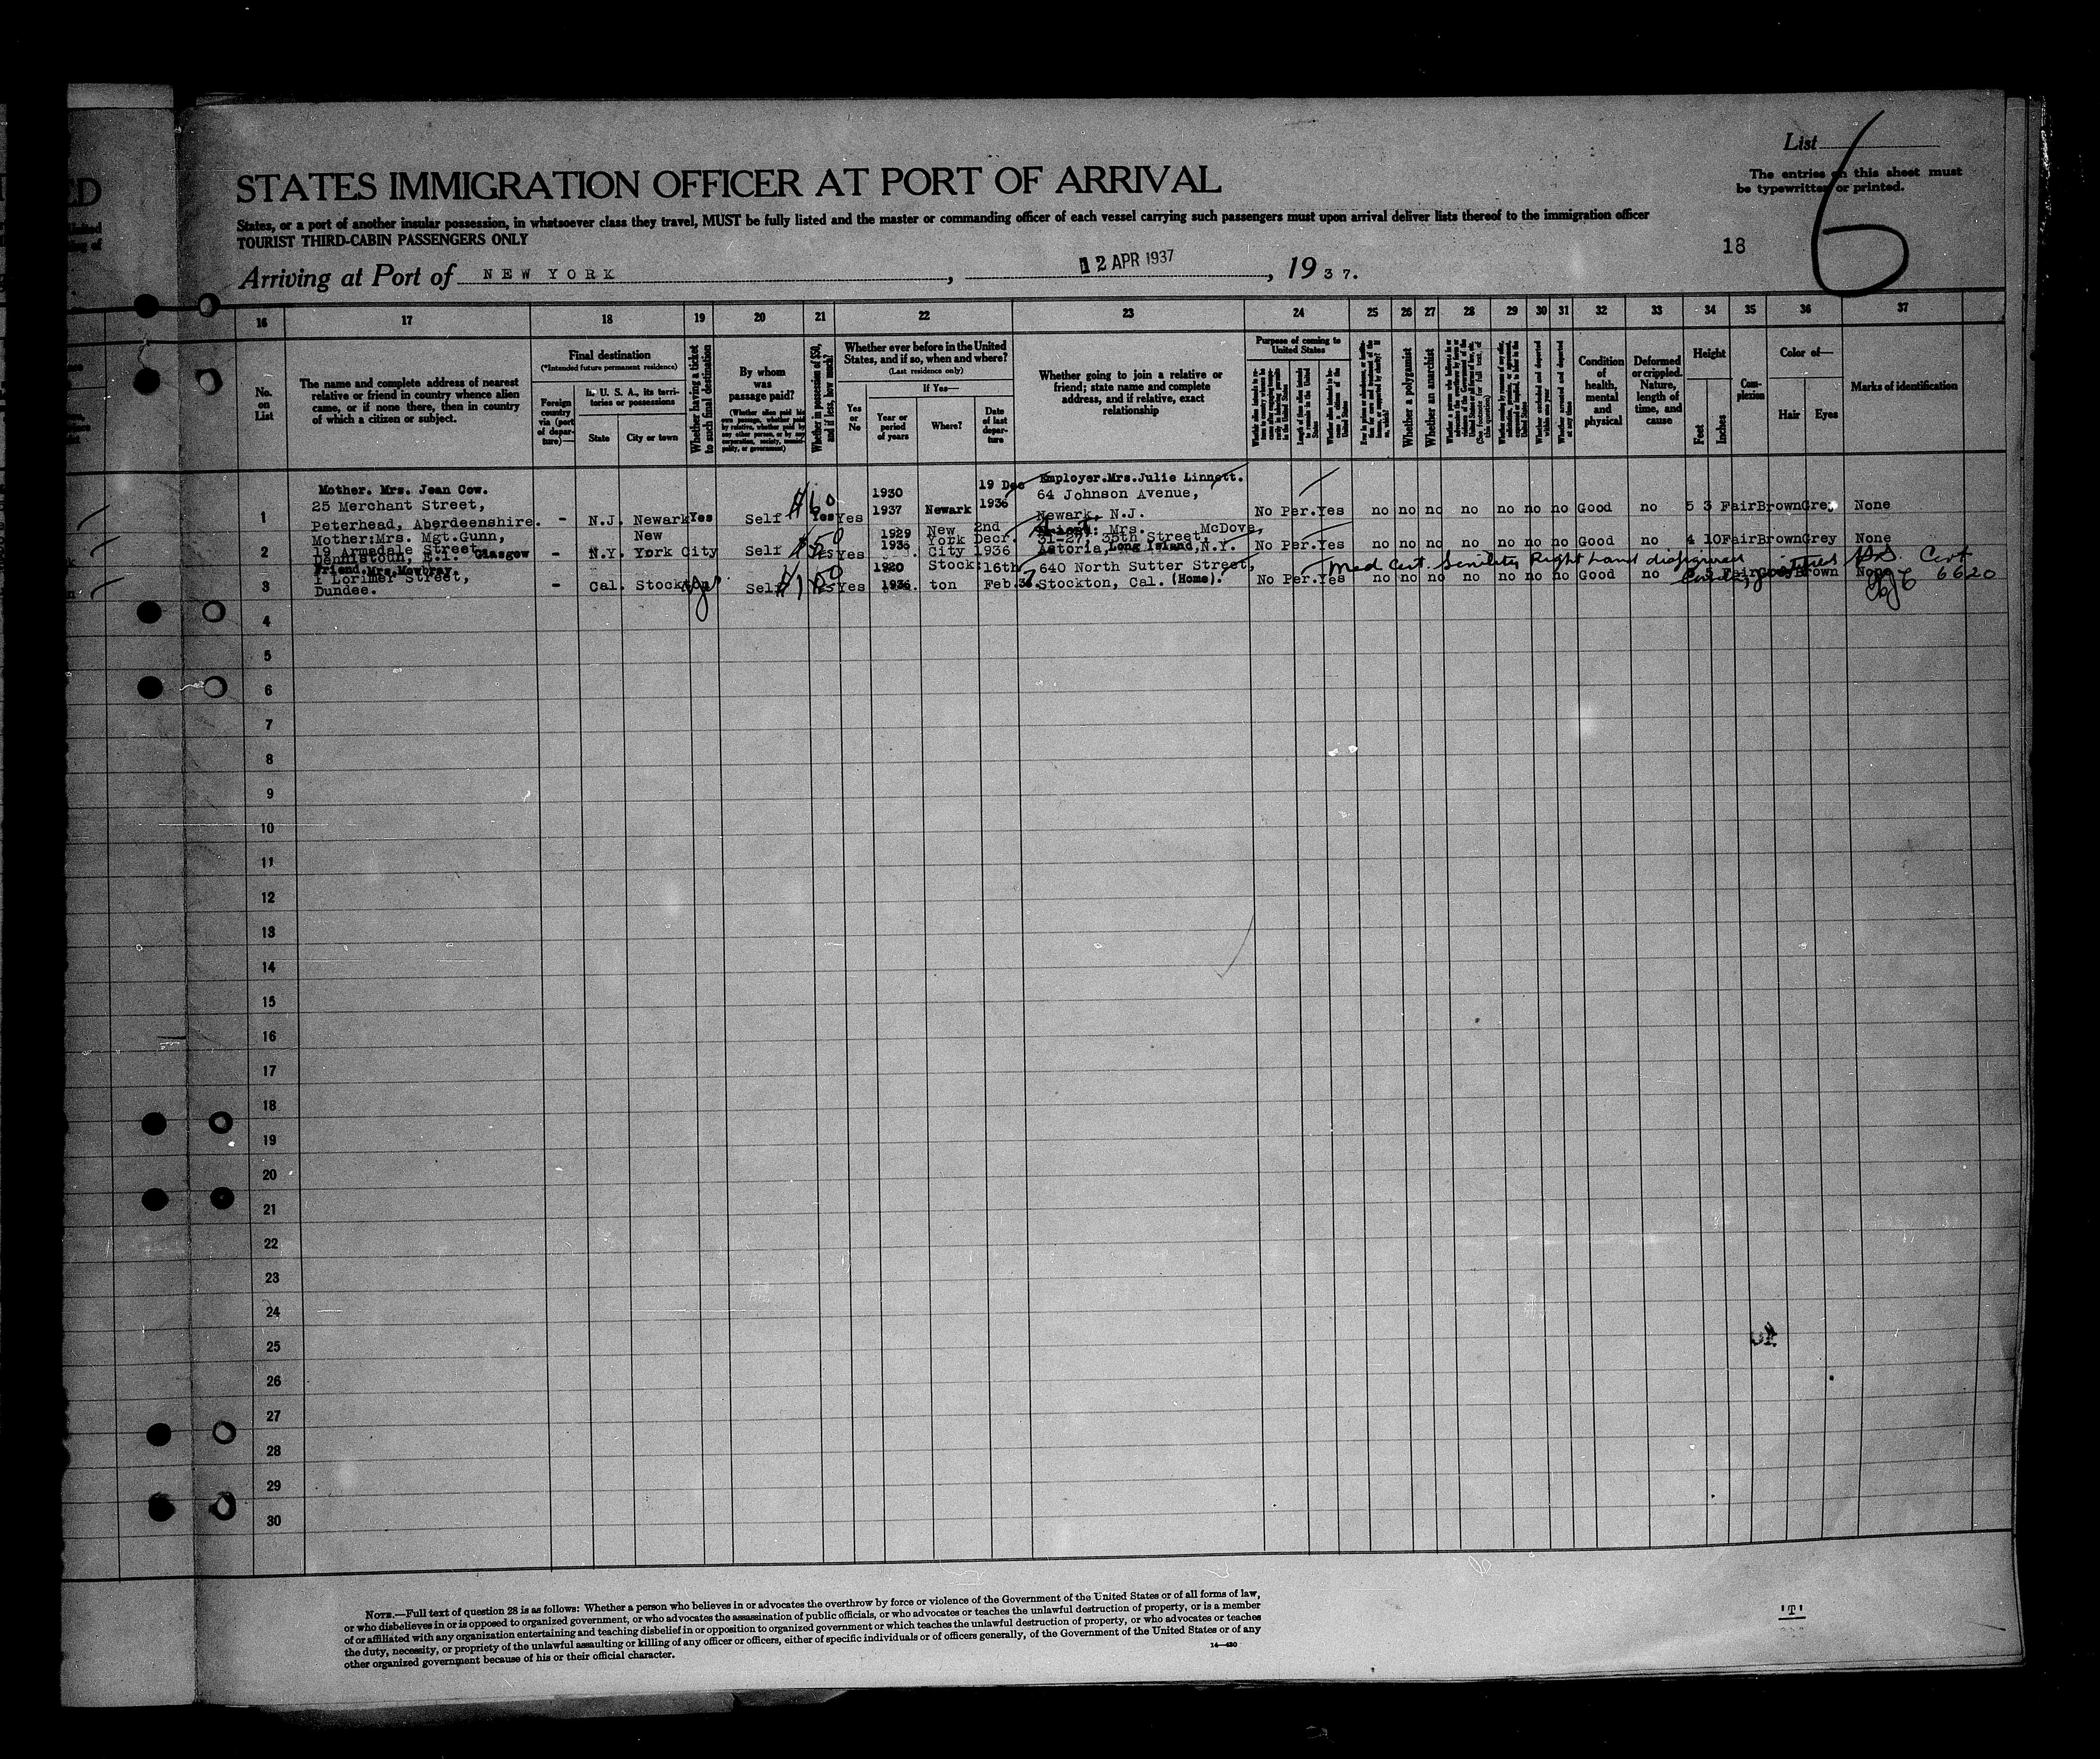 List
The entries on this sheet must
be typewritten or printed.
6
18
STATES IMMIGRATION OFFICER AT PORT OF ARRIVAL
States, or a port of another insular possession, in whatsoever class they travel, MUST be fully listed and the master or commanding officer of each vessel carrying such passengers must upon arrival deliver lists thereof to the immigration officer
TOURIST THIRD-CABIN PASSENGERS ONLY
Arriving at Port of NEW YORK, 12 APR 1937, 1937.
16 17 18 19 20 21 22 23 24 25 26 27 28 29 30 31 32 33 34 35 36 37
No. on List
The name and complete address of nearest
relative or friend in country whence alien
came, or if none there, then in country
of which a citizen or subject.
Final destination
(*Intended future permanent residence)
Foreign country via (port of departure)—
In U. S. A., its territories or possessions
State
City or town
Whether having a ticket to such final destination
By whom was passage paid?
(Whether alien paid his own passage, whether paid by relative, whether paid by any other person, or by any corporation, society, municipality, or government)
Whether in possession of $50, and if less, how much?
Whether ever before in the United
States, and if so, when and where?
(Last residence only)
Yes or No
If Yes—
Year or period of years
Where?
Date of last departure
Whether going to join a relative or
friend; state name and complete
address, and if relative, exact
relationship
Purpose of coming to United States
Whether a polygamist
Whether an anarchist
Condition of health, mental and physical
Deformed or crippled. Nature, length of time, and cause
Height
Feet
Inches
Complexion
Color of—
Hair
Eyes
Marks of identification
Mother. Mrs. Jean Cow.
25 Merchant Street,
Peterhead, Aberdeenshire.
1 - N.J. Newark Yes Self $60 Yes Yes 1930 1937 Newark 19 Dec 1936
Employer.Mrs.Julie Linnett.
64 Johnson Avenue,
Newark, N.J.
No Per. Yes no no no no no no no Good no 5 3 Fair Brown Grey None
Mother:Mrs. Mgt.Gunn,
19 Armadale Street,
Dennistoun, E.1. Glasgow
2 - N.Y. New York City Self $50 Yes Yes 1929 1936 New York City 2nd Decr. 1936
Mrs. McDove,
31-27, 35th Street,
Astoria, Long Island, N.Y.
No Per. Yes no no no no no no no Good no 4 10 Fair Brown Grey None
Friend.Mrs.Mowbray.
1 Lorimer Street,
Dundee.
3 - Cal. Stockton Self $150 Yes Yes 1920 1936. Stockton 16th Feb.
640 North Sutter Street,
Stockton, Cal. (Home).
No Per. Yes no no no no no no no Good no Fair Brown None
Med Cert. Senility Right hand disfigured
Cert
6620
4
5
6
7
8
9
10
11
12
13
14
15
16
17
18
19
20
21
22
23
24
25
26
27
28
29
30
NOTE.—Full text of question 28 is as follows: Whether a person who believes in or advocates the overthrow by force or violence of the Government of the United States or of all forms of law,
or who disbelieves in or is opposed to organized government, or who advocates the assassination of public officials, or who advocates or teaches the unlawful destruction of property, or is a member
of or affiliated with any organization entertaining and teaching disbelief in or opposition to organized government or which teaches the unlawful destruction of property, or who advocates or teaches
the duty, necessity, or propriety of the unlawful assaulting or killing of any officer or officers, either of specific individuals or of officers generally, of the Government of the United States or of any
other organized government because of his or their official character.
14—430
'T'